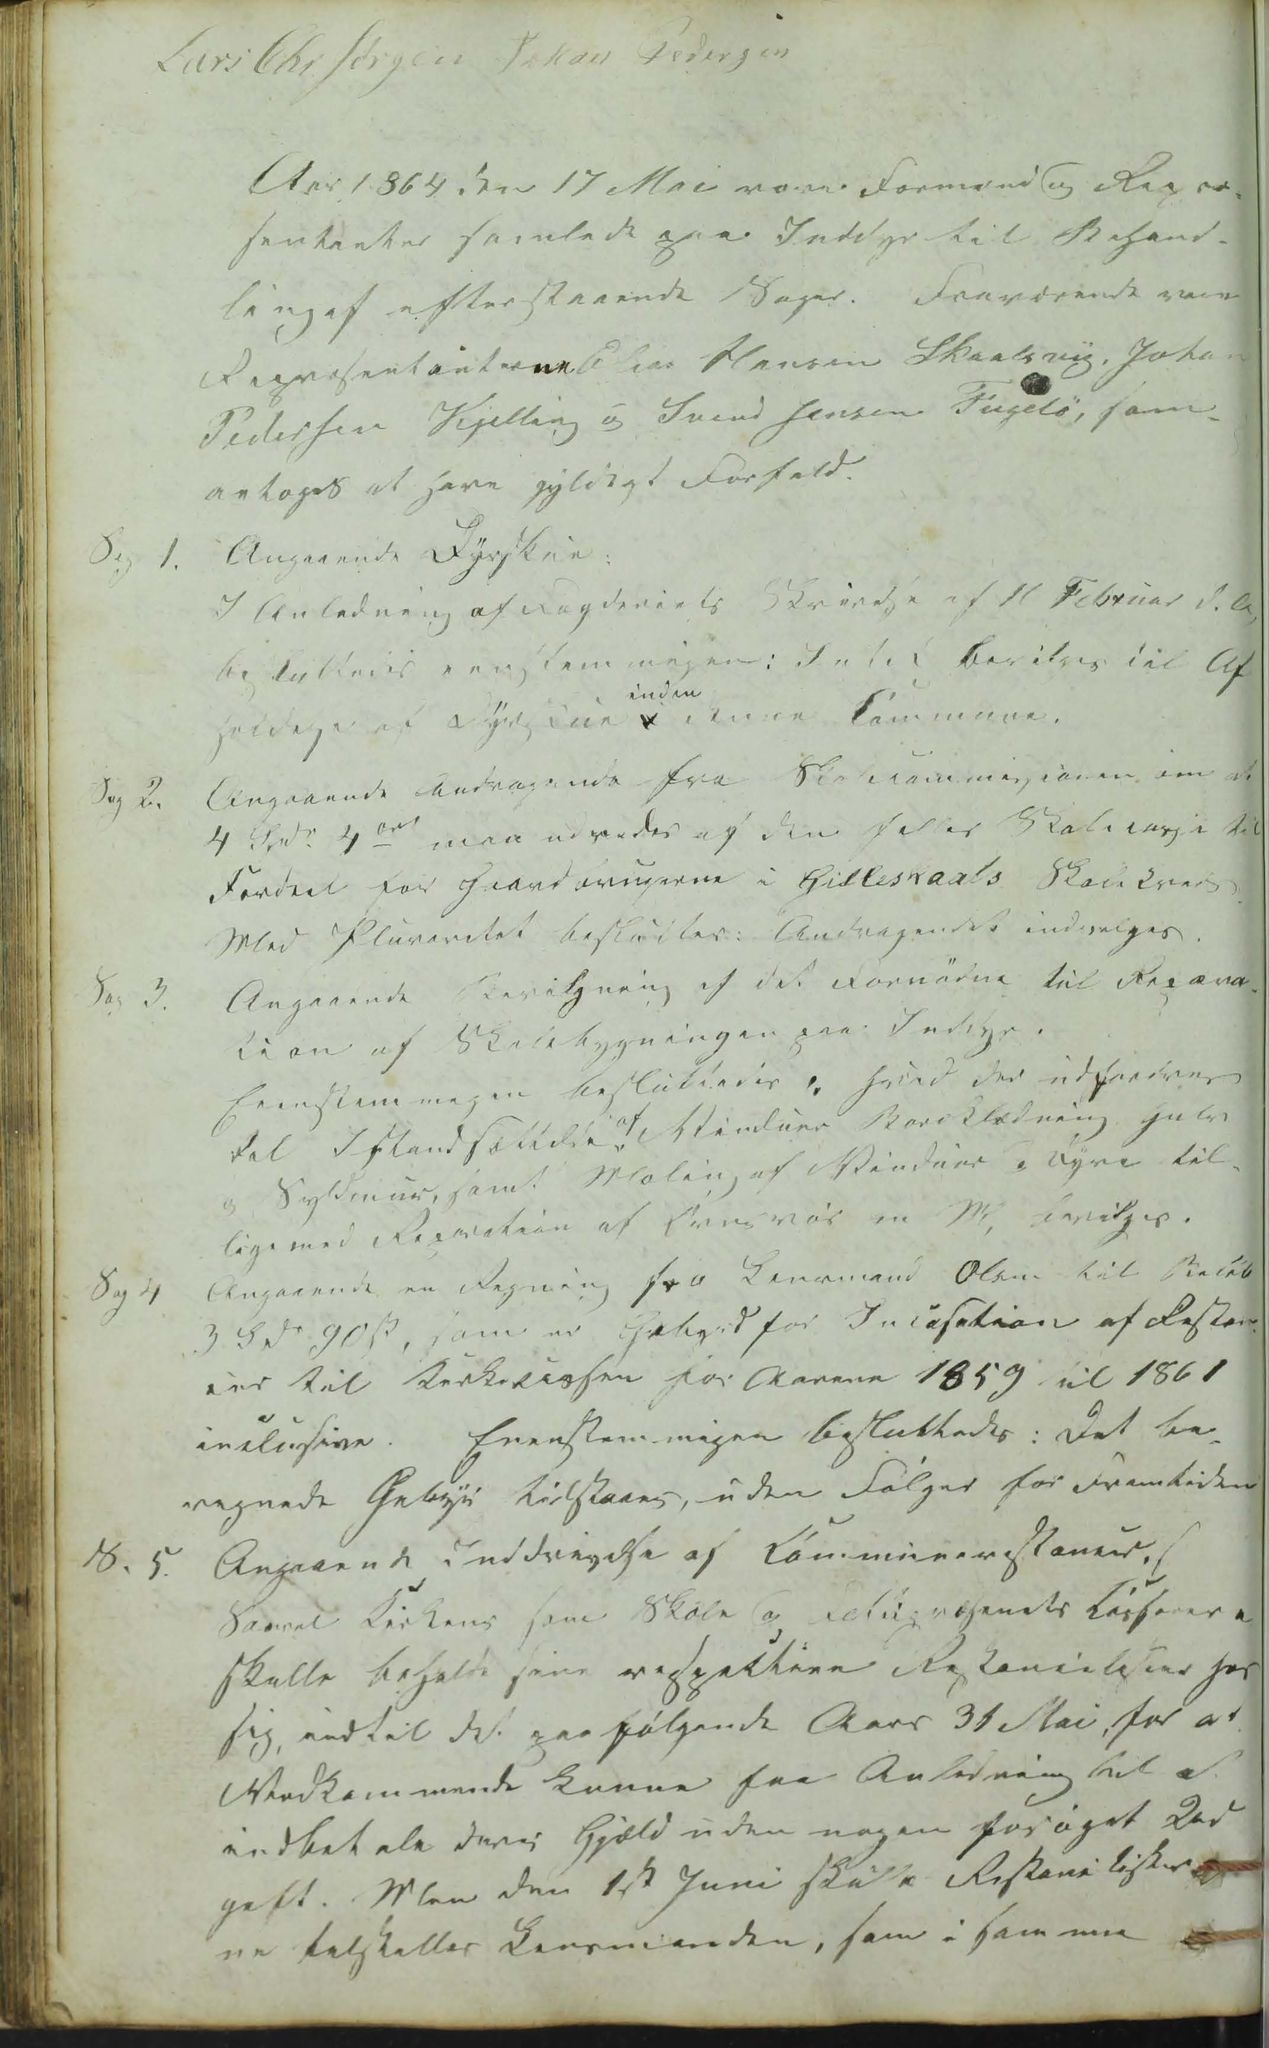 Lars Chr Jörgen Johan Pedersen
Aar 1864 den 17 Mai vare Formænd og Repræ-
sentanter samlede paa Inddyr til Behand-
ling af efterstaaende Sager. Fraværende vare
Repræsentanterne Elias Hansen Skaalsvig, Johan
Pedersen Kjelling og Svend Jensen Fugelö, som
antoges at have gyldigt Forfald.
Sag 1. Angaaende Dyrskue:
I Anledning af Fogderiets Skrivelse af 11 Februar d. A,
besluttedes eenstemmigen: Intet bevilges til Af
holdelse af Dyrskue inden denne Commune.
Sag 2. Angaaende Andragende fra Skolecommissionen om at
4 Spd. 4 ort maa udredes af den fælles Skolecasse til
Fordeel for Gaardbrugerne i Gilleskaals Skolekreds.
Med Pluraritet besluttes: Andragendet indvilges.
Sag 3. Angaaende Bevilgning af det Fornödne til Repara-
tion af Skolebygningen paa Inddyr.
Eenstemmigen besluttedes: Hvad der udfordres
til Istandsættelse af Vinduer Bordklædning Gulv
og Syldmur, samt Maling af Vinduer o Dyre til-
ligemed Reparation af en M, bevilges.
Sag 4 Angaaende en Regning fra Lensmand Olsen til Belöb
3 Spd 90 s, som er Gebyr for Incasation af Restan-
cer til Kirkecassen for Aarene 1859 til 1861
inclusive. Eenstemmigen besluttedes: Det be-
regnede Gebyr tilstaaes, uden Fölger for Fremtiden
S. 5. Angaaende Inddrivelse af Communerestancer.
Saavel Kirkens som Skole og Fattigvæsenets Casserere
skulle beholde sine respektive Restancelister hos
sig, indtil det paafölgende Aars 31 Mai, for at
Vedkommende kunne faa Anledning til at
indbetale deres Gjæld uden nogen foröget Ud
gift. Men den 1st Juni skulle Restancelister
ne tilstilles Lensmanden, som i samme